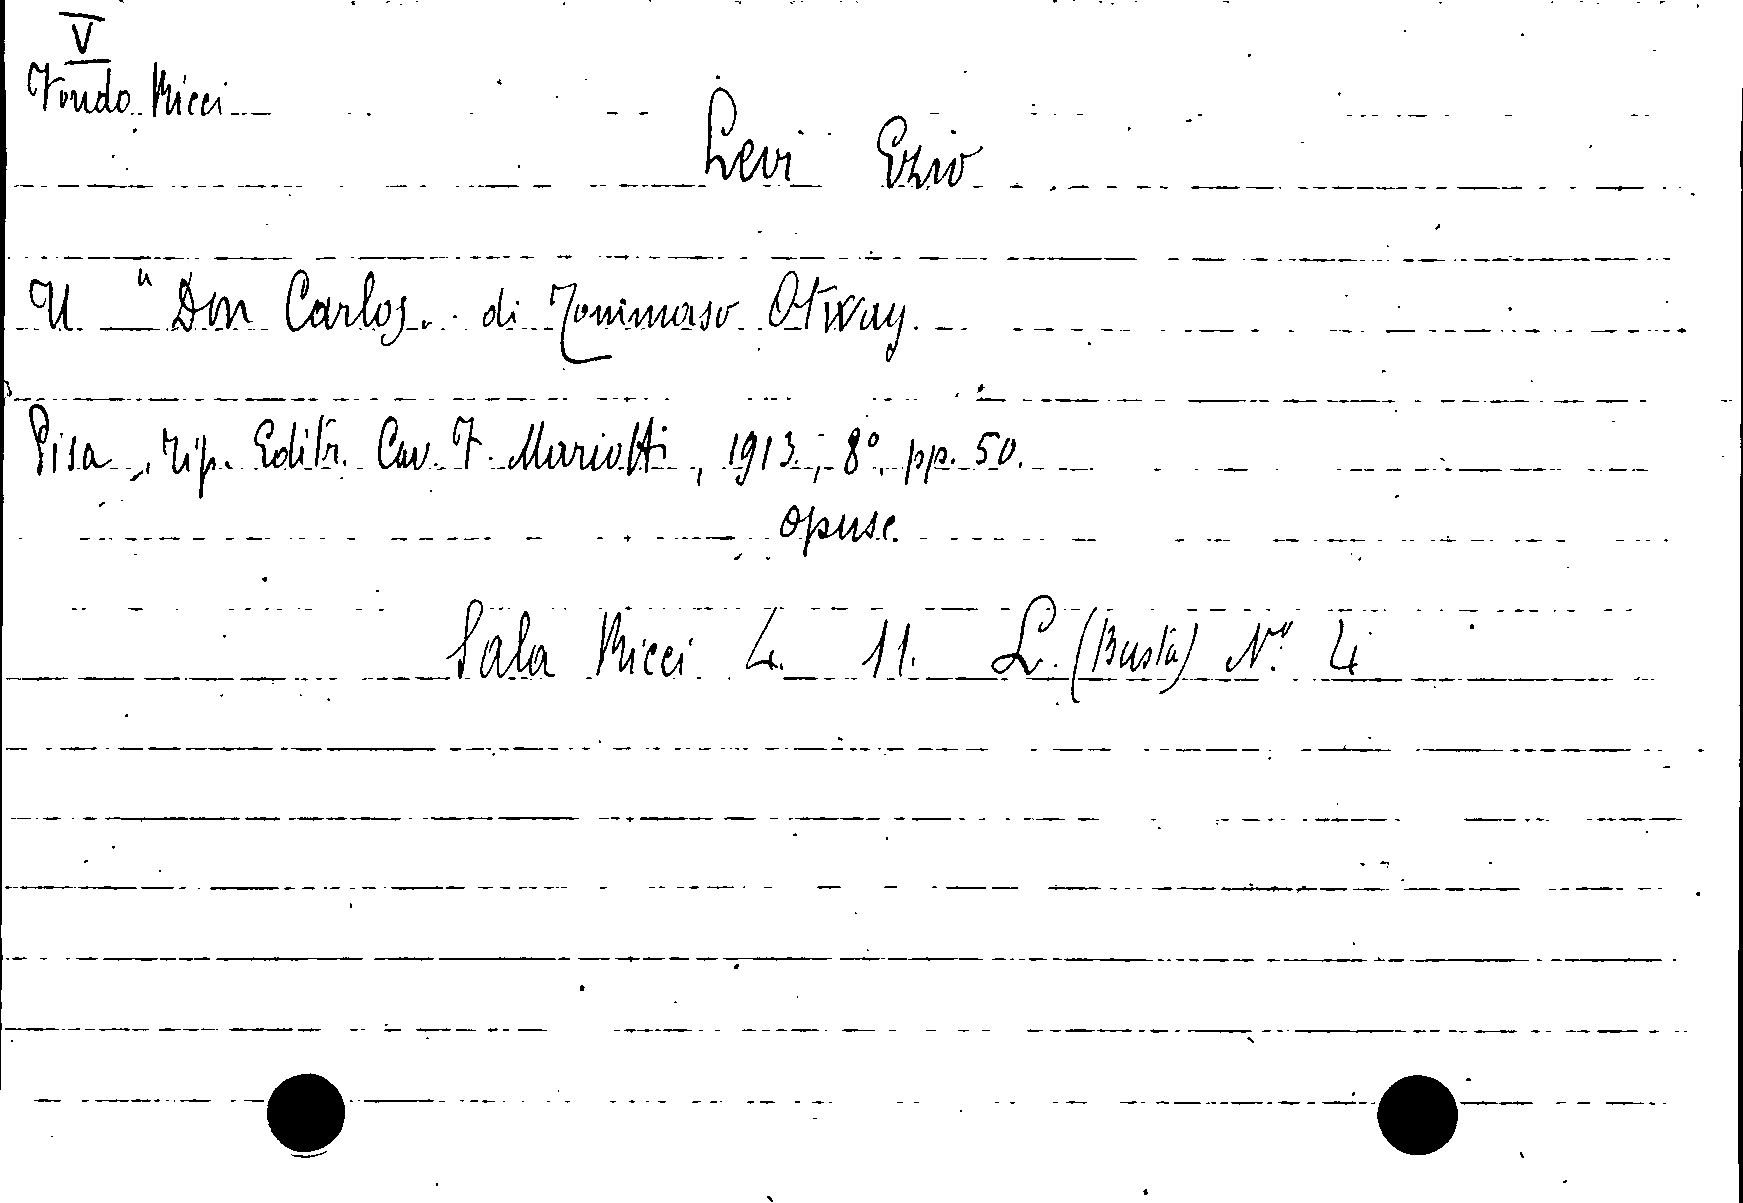 V
Fondo Ricci
Levi Ezio
Il "Don Carlos" di Tommaso Otway.
Pisa, Tip. Editr. Cav. F. Mariotti, 1913, 8°, pp. 50.
opusc.
Sala Ricci 4. 11. L. (Busta) N.° 4